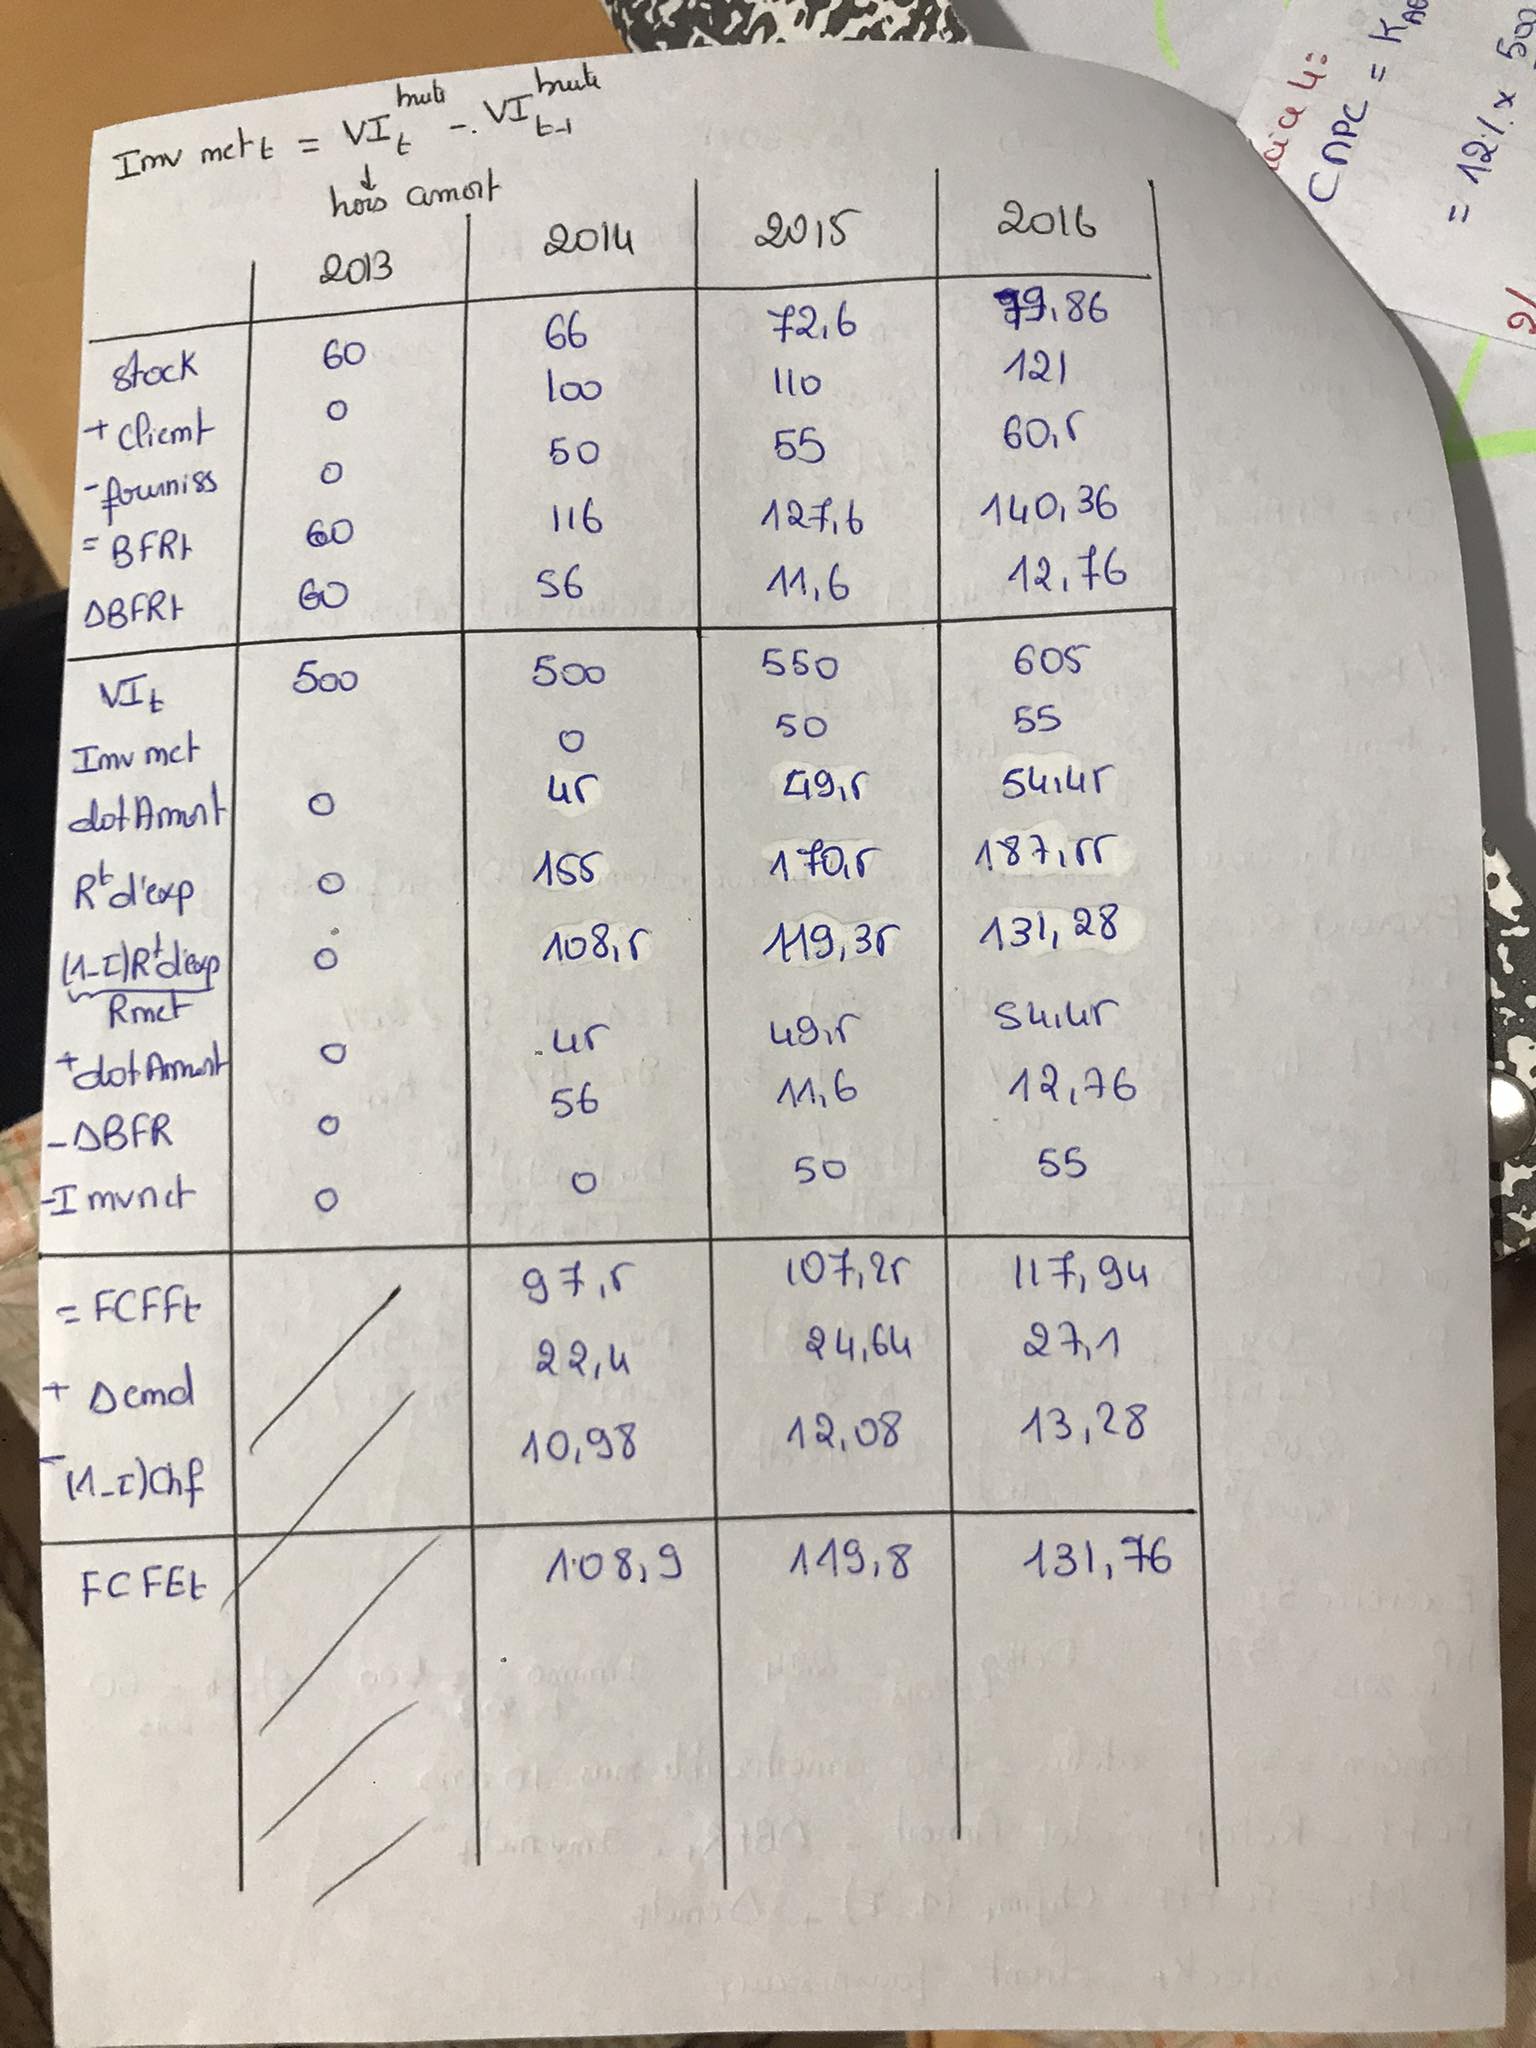 Inv net t = VI t brute - VI t-1 brute
↓
hors amort
2013 2014 2015 2016
stock 60 66 72,6 79,86
+ Client 0 100 110 121
- fourniss 0 50 55 60,5
= BFRt 60 116 127,6 140,36
ΔBFRt 60 56 11,6 12,76
VIt 500 500 550 605
Inv net 0 50 55
dotAmort 0 45 49,5 54,45
Rt d'exp 0 155 170,5 187,55
(1-τ)Rt d'exp 0 108,5 119,35 131,28
Rnet
+ dotAmort 0 45 49,5 54,45
- ΔBFR 0 56 11,6 12,76
- Invnet 0 0 50 55
= FCFFt 97,5 107,25 117,94
+ Δend 22,4 24,64 27,1
- (1-τ)Chf 10,98 12,08 13,28
FCFEt 108,9 119,8 131,76
4:
CMPC = K
= 12% x 500
2/